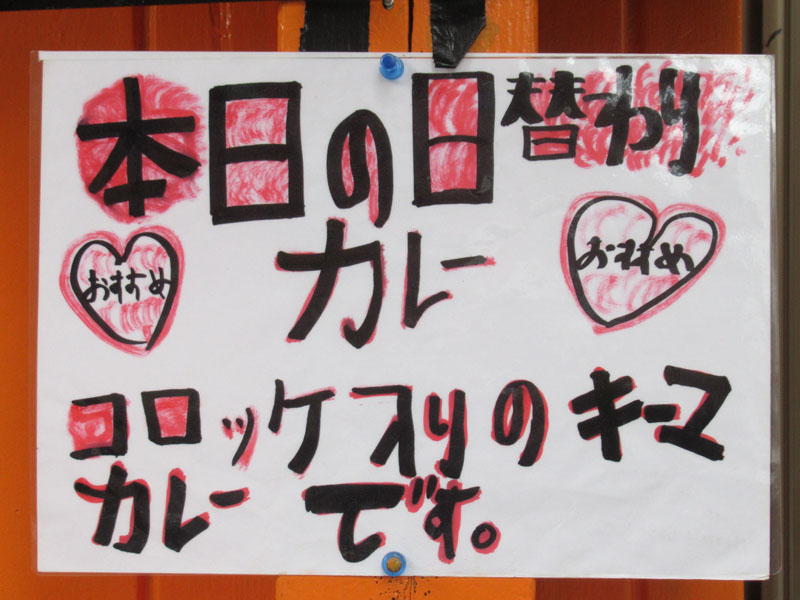 本日の日替わり
カレー
おすすめ
おすすめ
コロッケ入りのキーマ
カレーです。